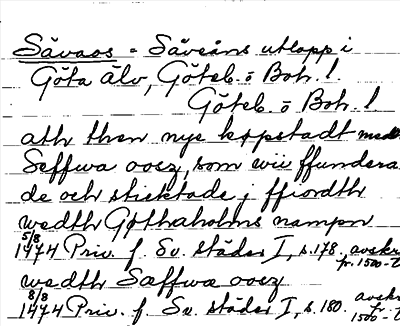 Sävaos = Säveåns utlopp i
Göta älv, Göteb. o Boh. l.
Göteb. o Boh. l
ath then nye køpstadt med
Seffwa oosz, som wii ffundera
de och sticktade j ffiordth
wedth Gøthaholms nampn
5/8 1474 Priv. f. Sv. städer I, s. 178. avskr. fr. 1500-t
wedth Sæffwa oosz
8/8 1474 Priv. f. Sv. städer I, s. 180. avskr. fr. 1500-t